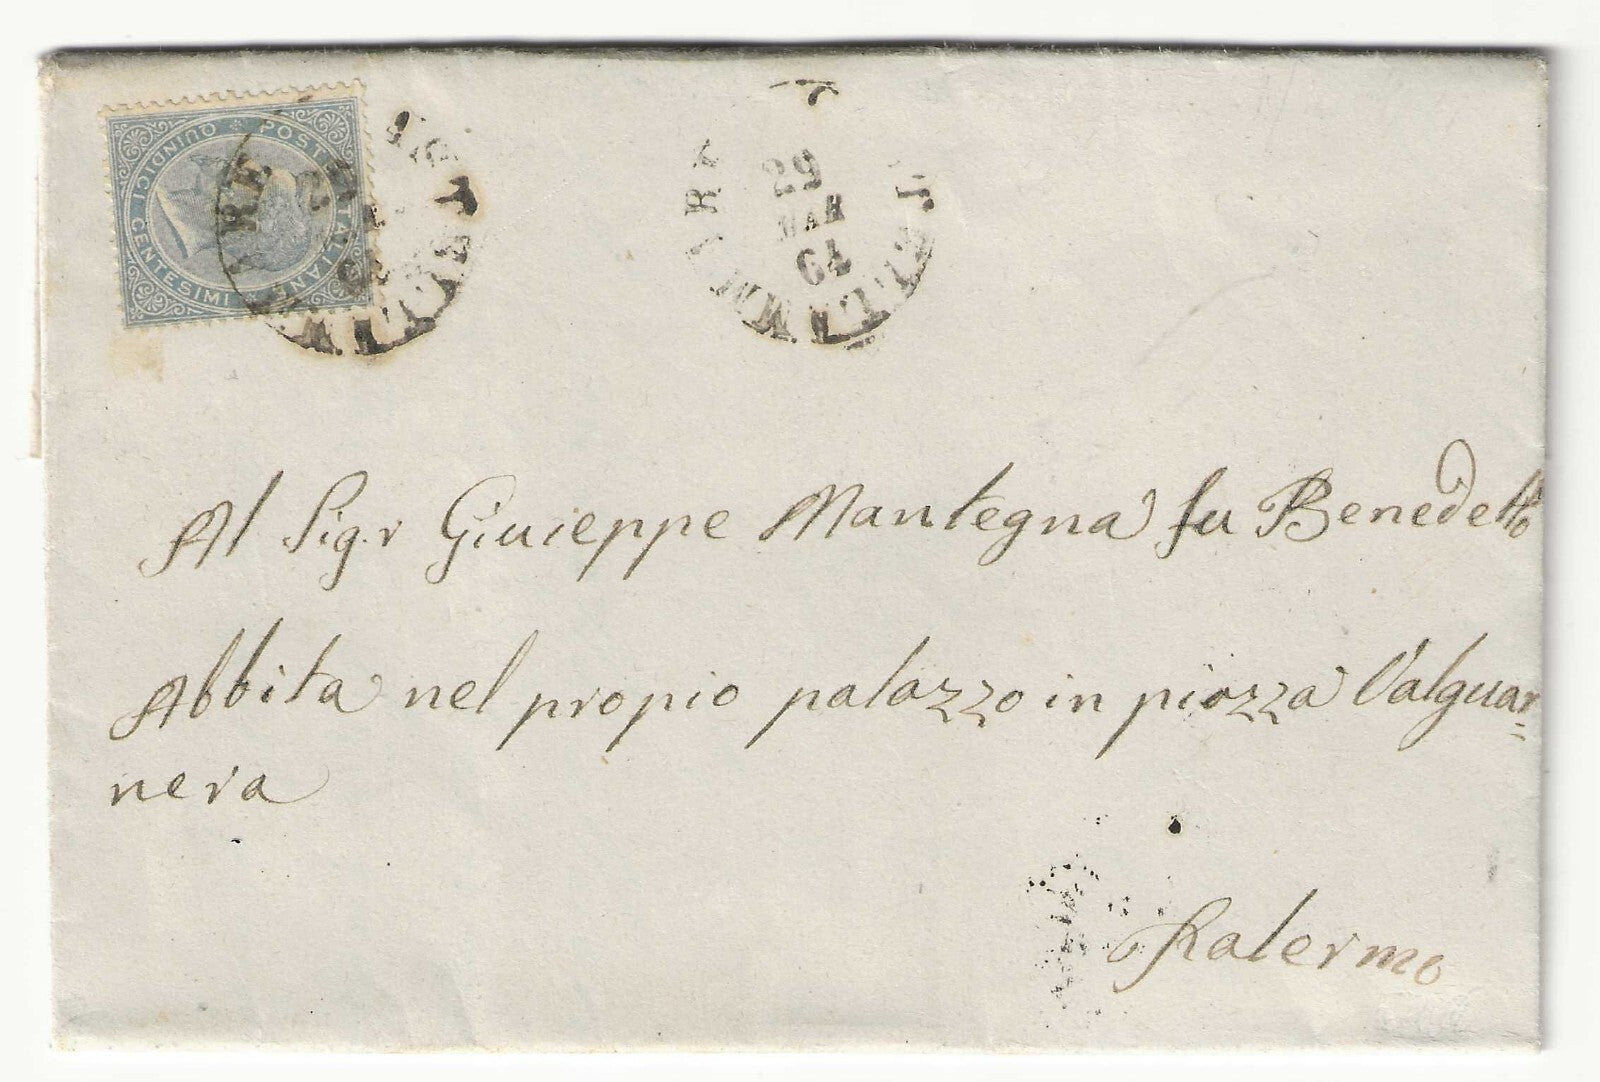 POSTE ITALIANE
QUINDICI CENTESIMI
29
MAR
64
Al Sig.r Giuseppe Mantegna fu Benedetto
Abbita nel proprio palazzo in piazza Valguar=
nera
Palermo